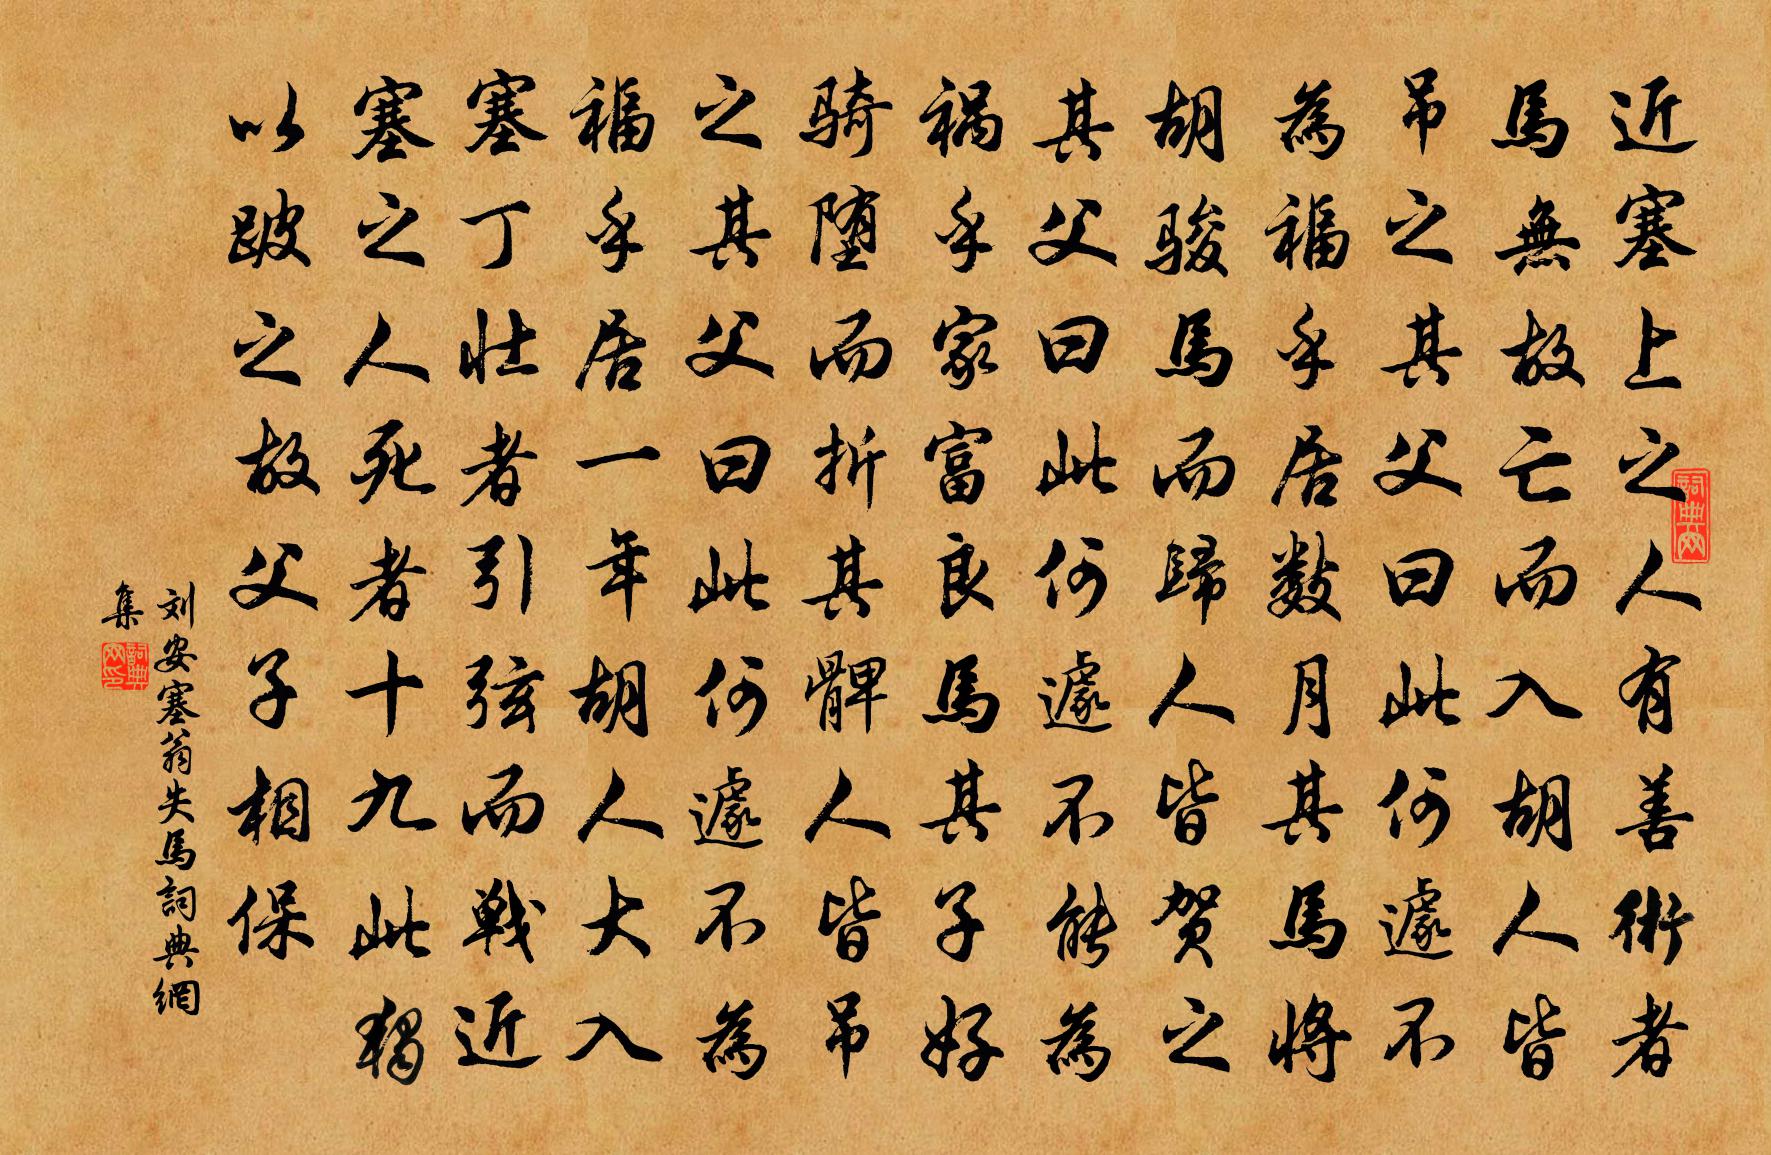 近塞上之人有善術者
馬無故亡而入胡人皆
吊之其父曰此何遽不
為福乎居数月其馬將
胡骏馬而歸人皆贺之
其父曰此何遽不能為
祸乎家富良馬其子好
骑堕而折其髀人皆吊
之其父曰此何遽不為
福乎居一年胡人大入
塞丁壮者引弦而戦近
塞之人死者十九此獨
以跛之故父子相保
刘安塞翁失馬詞典網
集
詞典网
詞典网印